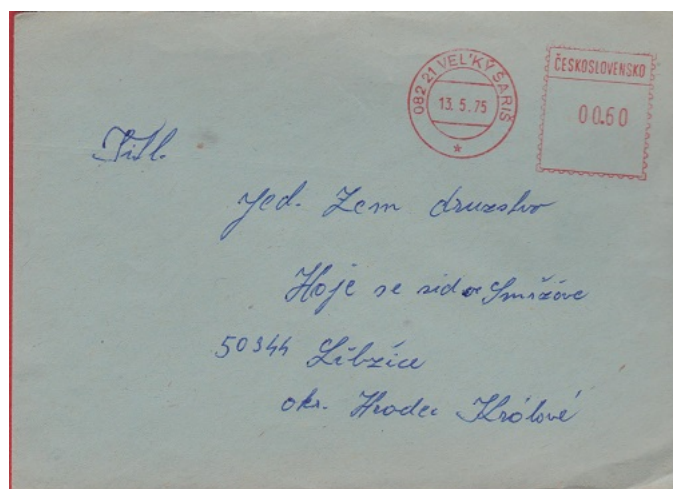 082 21 VEĽKÝ ŠARIŠ
13. 5. 75
ČESKOSLOVENSKO
00.60
Titl.
Jed. Zem družstvo
Hoje se sidor Smržove
50344 Libžice
okr. Hradec Králové